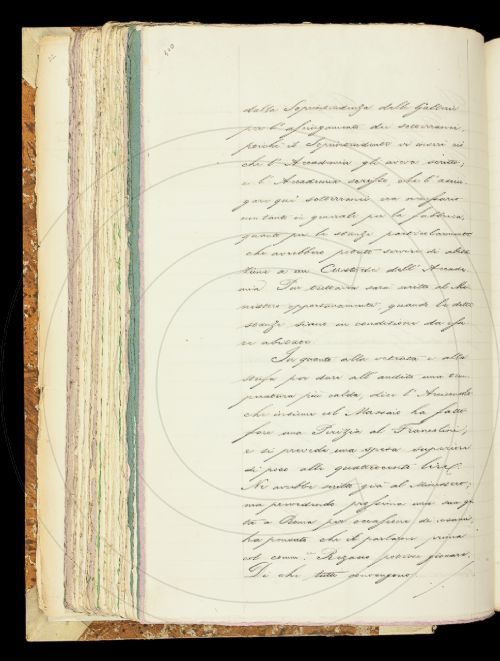 dalla Soprintendenza delle Gallerie
per l'asciugamento dei sotterranei,
perché il Soprintendente vi unì ciò
che l'Accademia gli aveva scritto;
e l'Accademia scrisse, che l'asciu-
gare quei sotterranei era necessario
non tanto in generale per la fabbrica,
quanto per le stanze particolarmente
che avrebbero potuto servire di abita-
zione a un Custode dell'Accade-
mia. Per tuttavia sarà scritto al Mi-
nistero opportunamente quando le dette
stanze siano in condizioni da esse-
re abitate.
In quanto alla vetrata e alla
stufa per dare all'andito una tem-
peratura più calda, dice l'
che insieme col Massaio ha fatto
fare una Perizia al Francolini,
e si prevede una spesa superiore
di poco alle quattrocento lire.
Ne avrebbe scritto già al Ministero;
ma prevedendo prossima una sua gi-
ta a Roma per occasione di
ha pensato che il parlarne prima
col comm. Rezasco potesse giovare.
Di che tutti convengono.